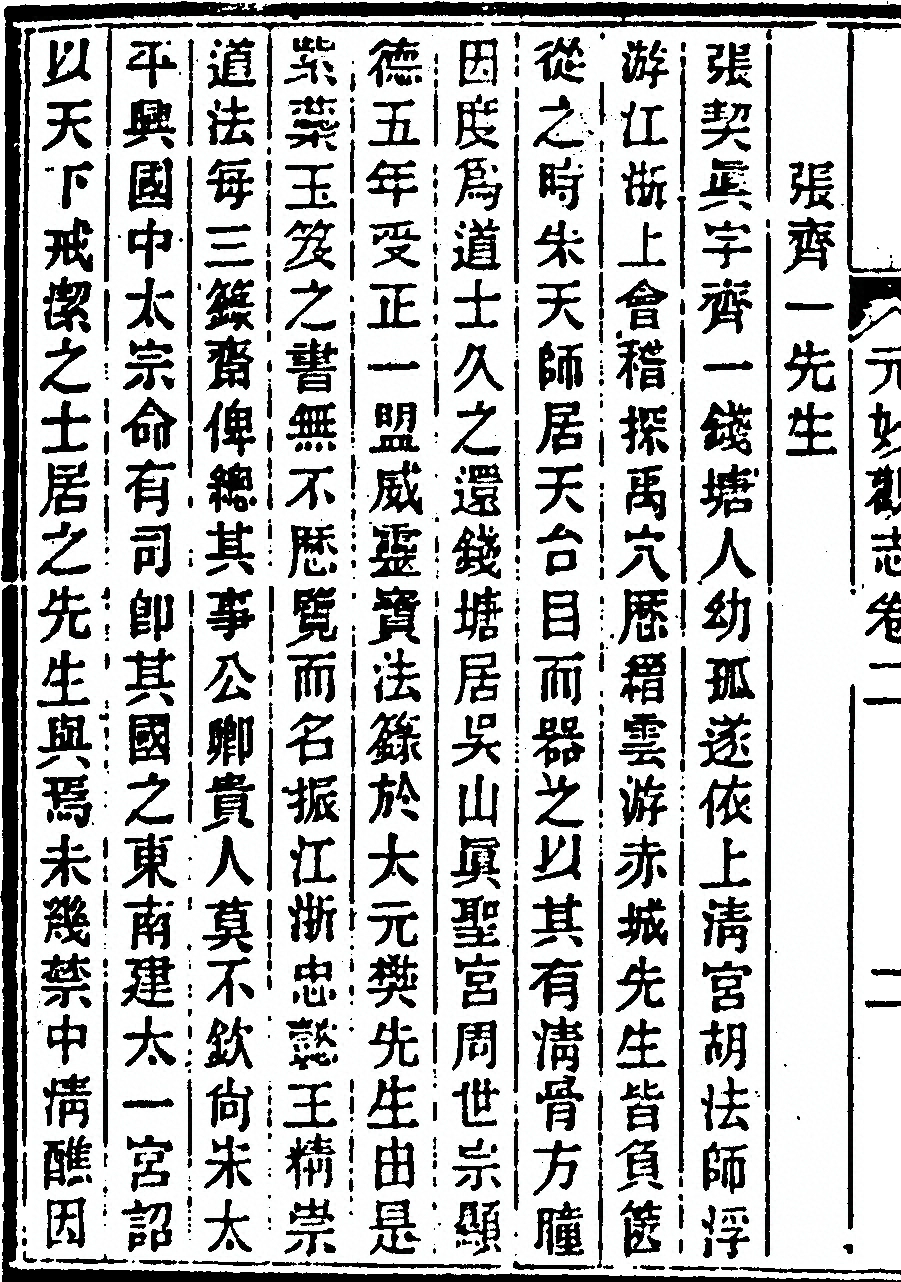 元妙觀志卷二
二
張齊一先生
張契眞字齊一錢塘人幼孤遂依上淸宮胡法師浮
游江浙上會稽探禹穴歷縉雲游赤城先生皆負笈
從之時朱天師居天台目而器之以其有淸骨方瞳
因度爲道士久之還錢塘居吳山眞聖宮周世宗顯
德五年受正一盟威靈寶法籙於太元樊先生由是
紫蘂玉笈之書無不歷覽而名振江浙忠懿王精崇
道法每三籙齋俾總其事公卿貴人莫不欽尙朱太
平興國中太宗命有司卽其國之東南建太一宮詔
以天下戒潔之士居之先生與焉未幾禁中情醮因